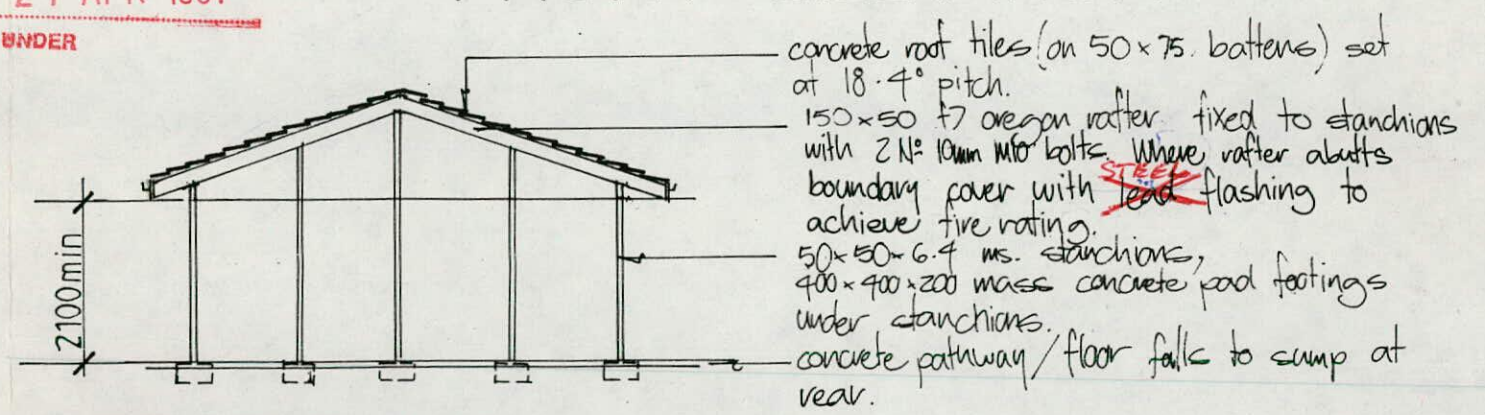 UNDER
concrete roof tiles (on 50 x 75. battens) set
at 18.4° pitch.
150x50 f7 oregon rafter fixed to stanchions
with 2 Nº 10mm bolts. Where rafter abutts
STEEL
boundary cover with lead flashing to
achieve fire rating.
50x50x6.4 ms. stanchions,
400x400x200 mass concrete pad footings
under stanchions.
concrete pathway / floor falls to sump at
rear.
2100min